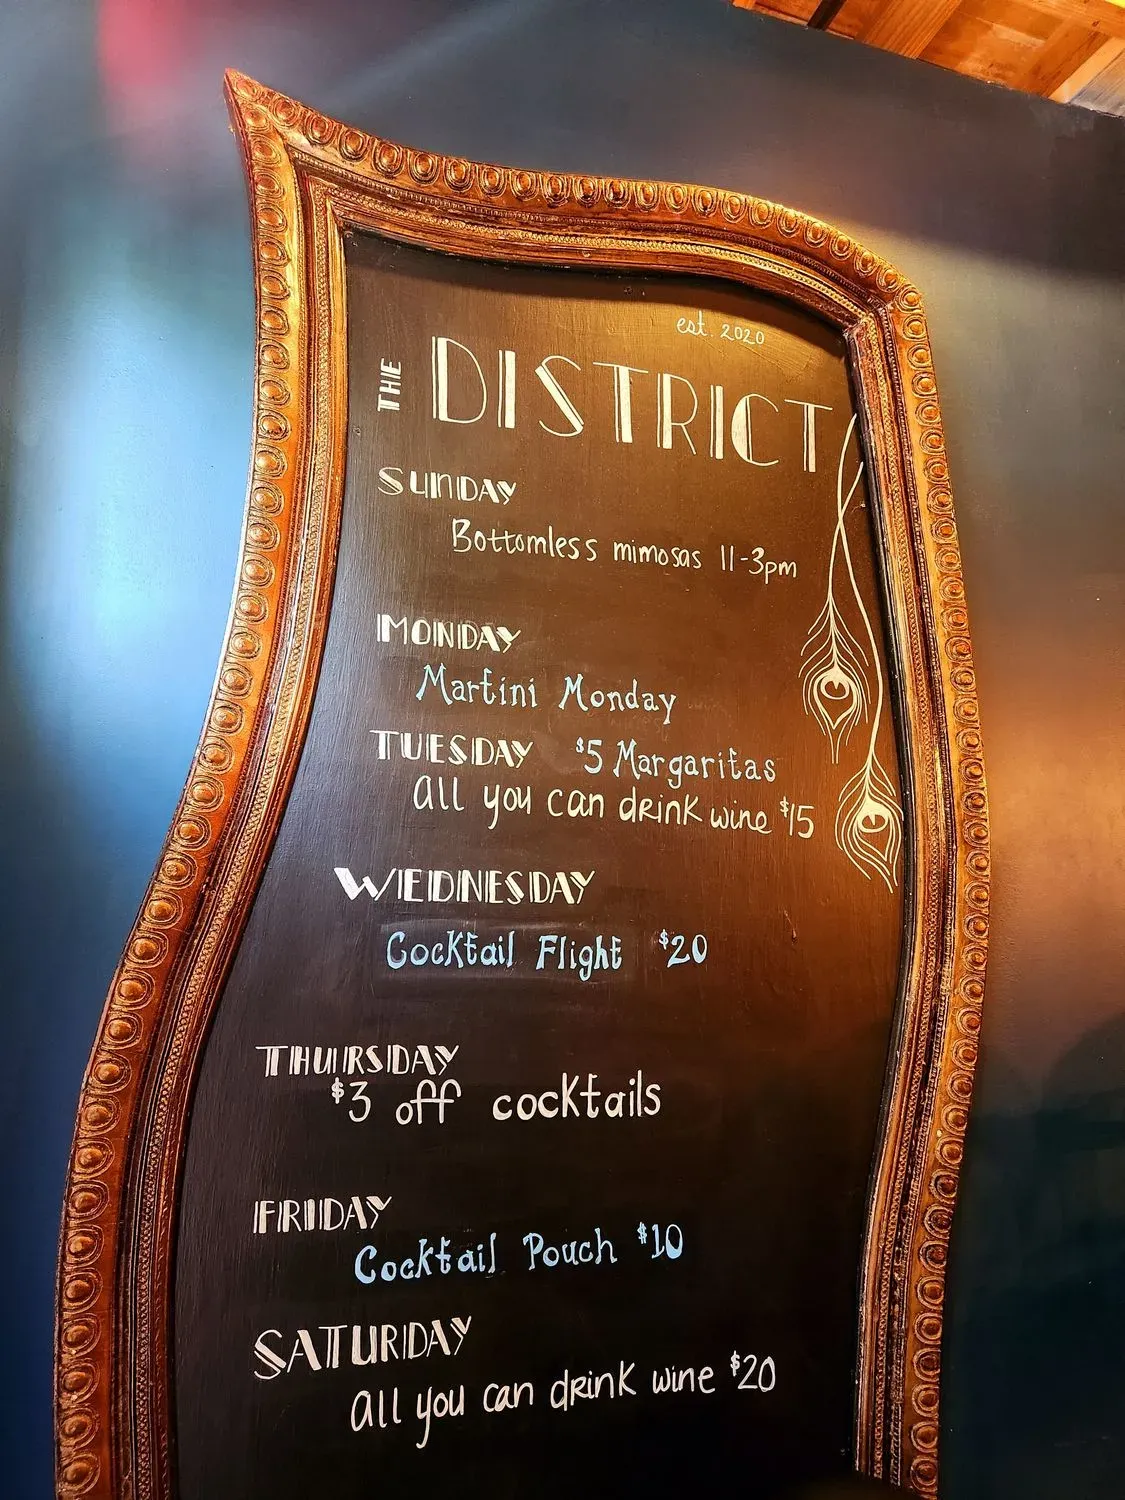 est. 2020
THE DISTRICT
SUNDAY
Bottomless mimosas 11-3pm
MONDAY
Martini Monday
TUESDAY $5 Margaritas
all you can drink wine $15
WEDNESDAY
Cocktail Flight $20
THURSDAY
$3 off cocktails
FRIDAY
Cocktail Pouch $10
SATURDAY
all you can drink wine $20